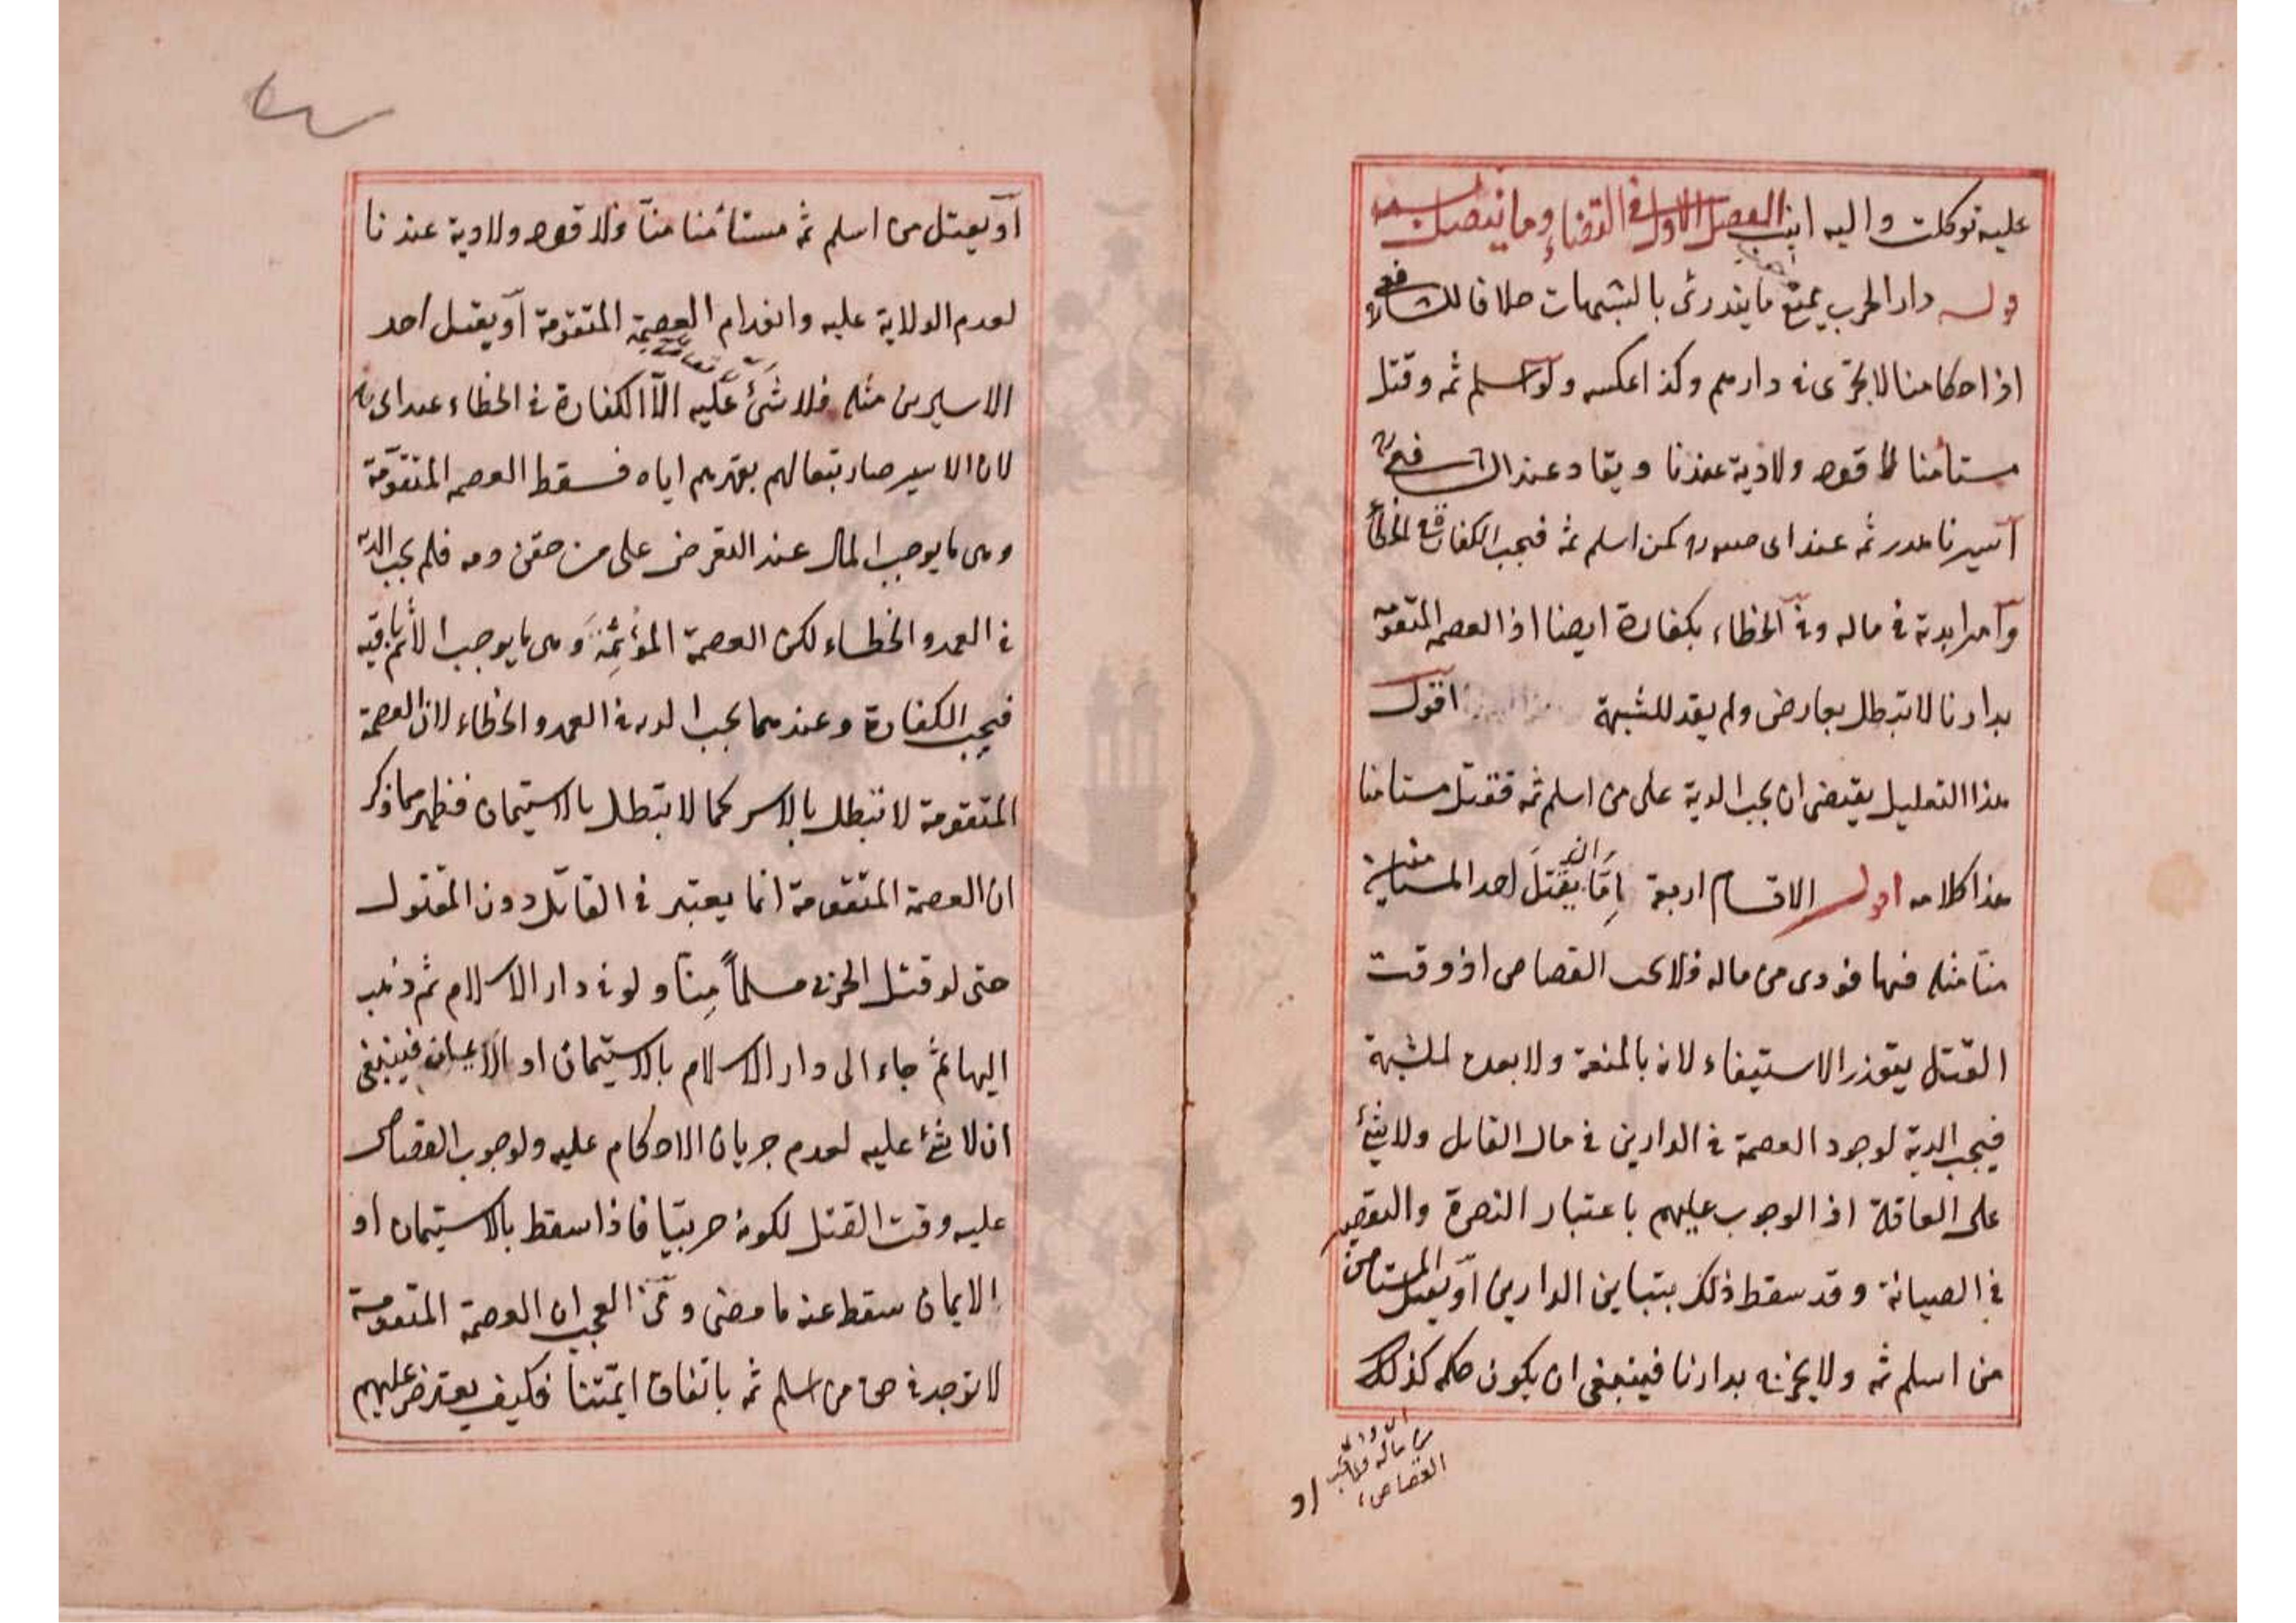 عليه توكلت واليه انيب الفصل الاول في القضاء وما يتصل به
قوله دار الحرب يمنع ما يندرئ بالشبهات خلافا للشافعي
اذ احكامنا لا تجرى في دارهم وكذا عكسه ولو اسلم ثمه وقتل
مستأمنا لا قود ولا دية عندنا ويقاد عند الشافعي
أسيرنا هدر ثمه عند ابى كمن اسلم ثمه فيجب الكفارة في الخطأ
وفي الخطاء بكفارة ايضا اذ العصمه المتقومه
بدارنا لا تبطل بعارض ولم يقد للشبهة اقول
هذا التعليل يقتضى ان يجب الدية على من اسلم ثمه فقتل مستامنا
هذا كلامه اقول الاقسام اربعة اما ان يقتل احد المستأمنين
منا مثله فيها فودى من ماله فلا يجب القصاص اذ وقت
القتل يتعذر الاستيفاء لانه بالمنعة للشبهة
فيجب الدية لوجود العصمة في الدارين في مال القاتل ولا شئ
على العاقلة اذ الوجوب عليهم باعتبار النصرة والتقصير
في الصيانة وقد سقط ذلك بتباين الدارين او يقتل المستأمن
من اسلم ثمه ولا يحرزه بدارنا فينبغى ان يكون حكمه كذلك
من ماله فلا يجب
القصاص
او
أو يقتل من اسلم ثمه مستأمنا منا فلا قود ولا دية عندنا
لعدم الولاية عليه وانعدام العصمة المتقومة أو يقتل احد
الاسيرين مثله فلا شئ عليه الا الكفارة في الخطاء عند ابى
لان الاسير صار تبعا لهم بقهرهم اياه فسقط العصمه المتقومة
وهى ما يوجب المال عند التعرض على من حقن دمه فلم يجب الدية
في العمد والخطاء لكن العصمة المؤثمة وهى ما يوجب الاثم باقية
فيجب الكفارة وعندهما يجب الديه في العمد والخطاء لان العصمة
المتقومة لا تبطل بالاسر كما لا تبطل بالاستيمان فظهر مما ذكر
ان العصمة المتقومة انما يعتبر في القاتل دون المقتول
حتى لو قتل الحربى مسلما منا ولو في دار الاسلام ثم ذهب
اليها ثم جاء الى دار الاسلام بالاستيمان او الايمان فينبغى
ان لا شئ عليه لعدم جريان الاحكام عليه ولوجوب القصاص
عليه وقت القتل لكونه حربيا فاذا سقط بالاستيمان او
الايمان سقط عنه ما مضى ومن العجب ان العصمة المتقومة
لا توجد في حق من اسلم ثمه باتفاق ائمتنا فكيف يعترض عليهم